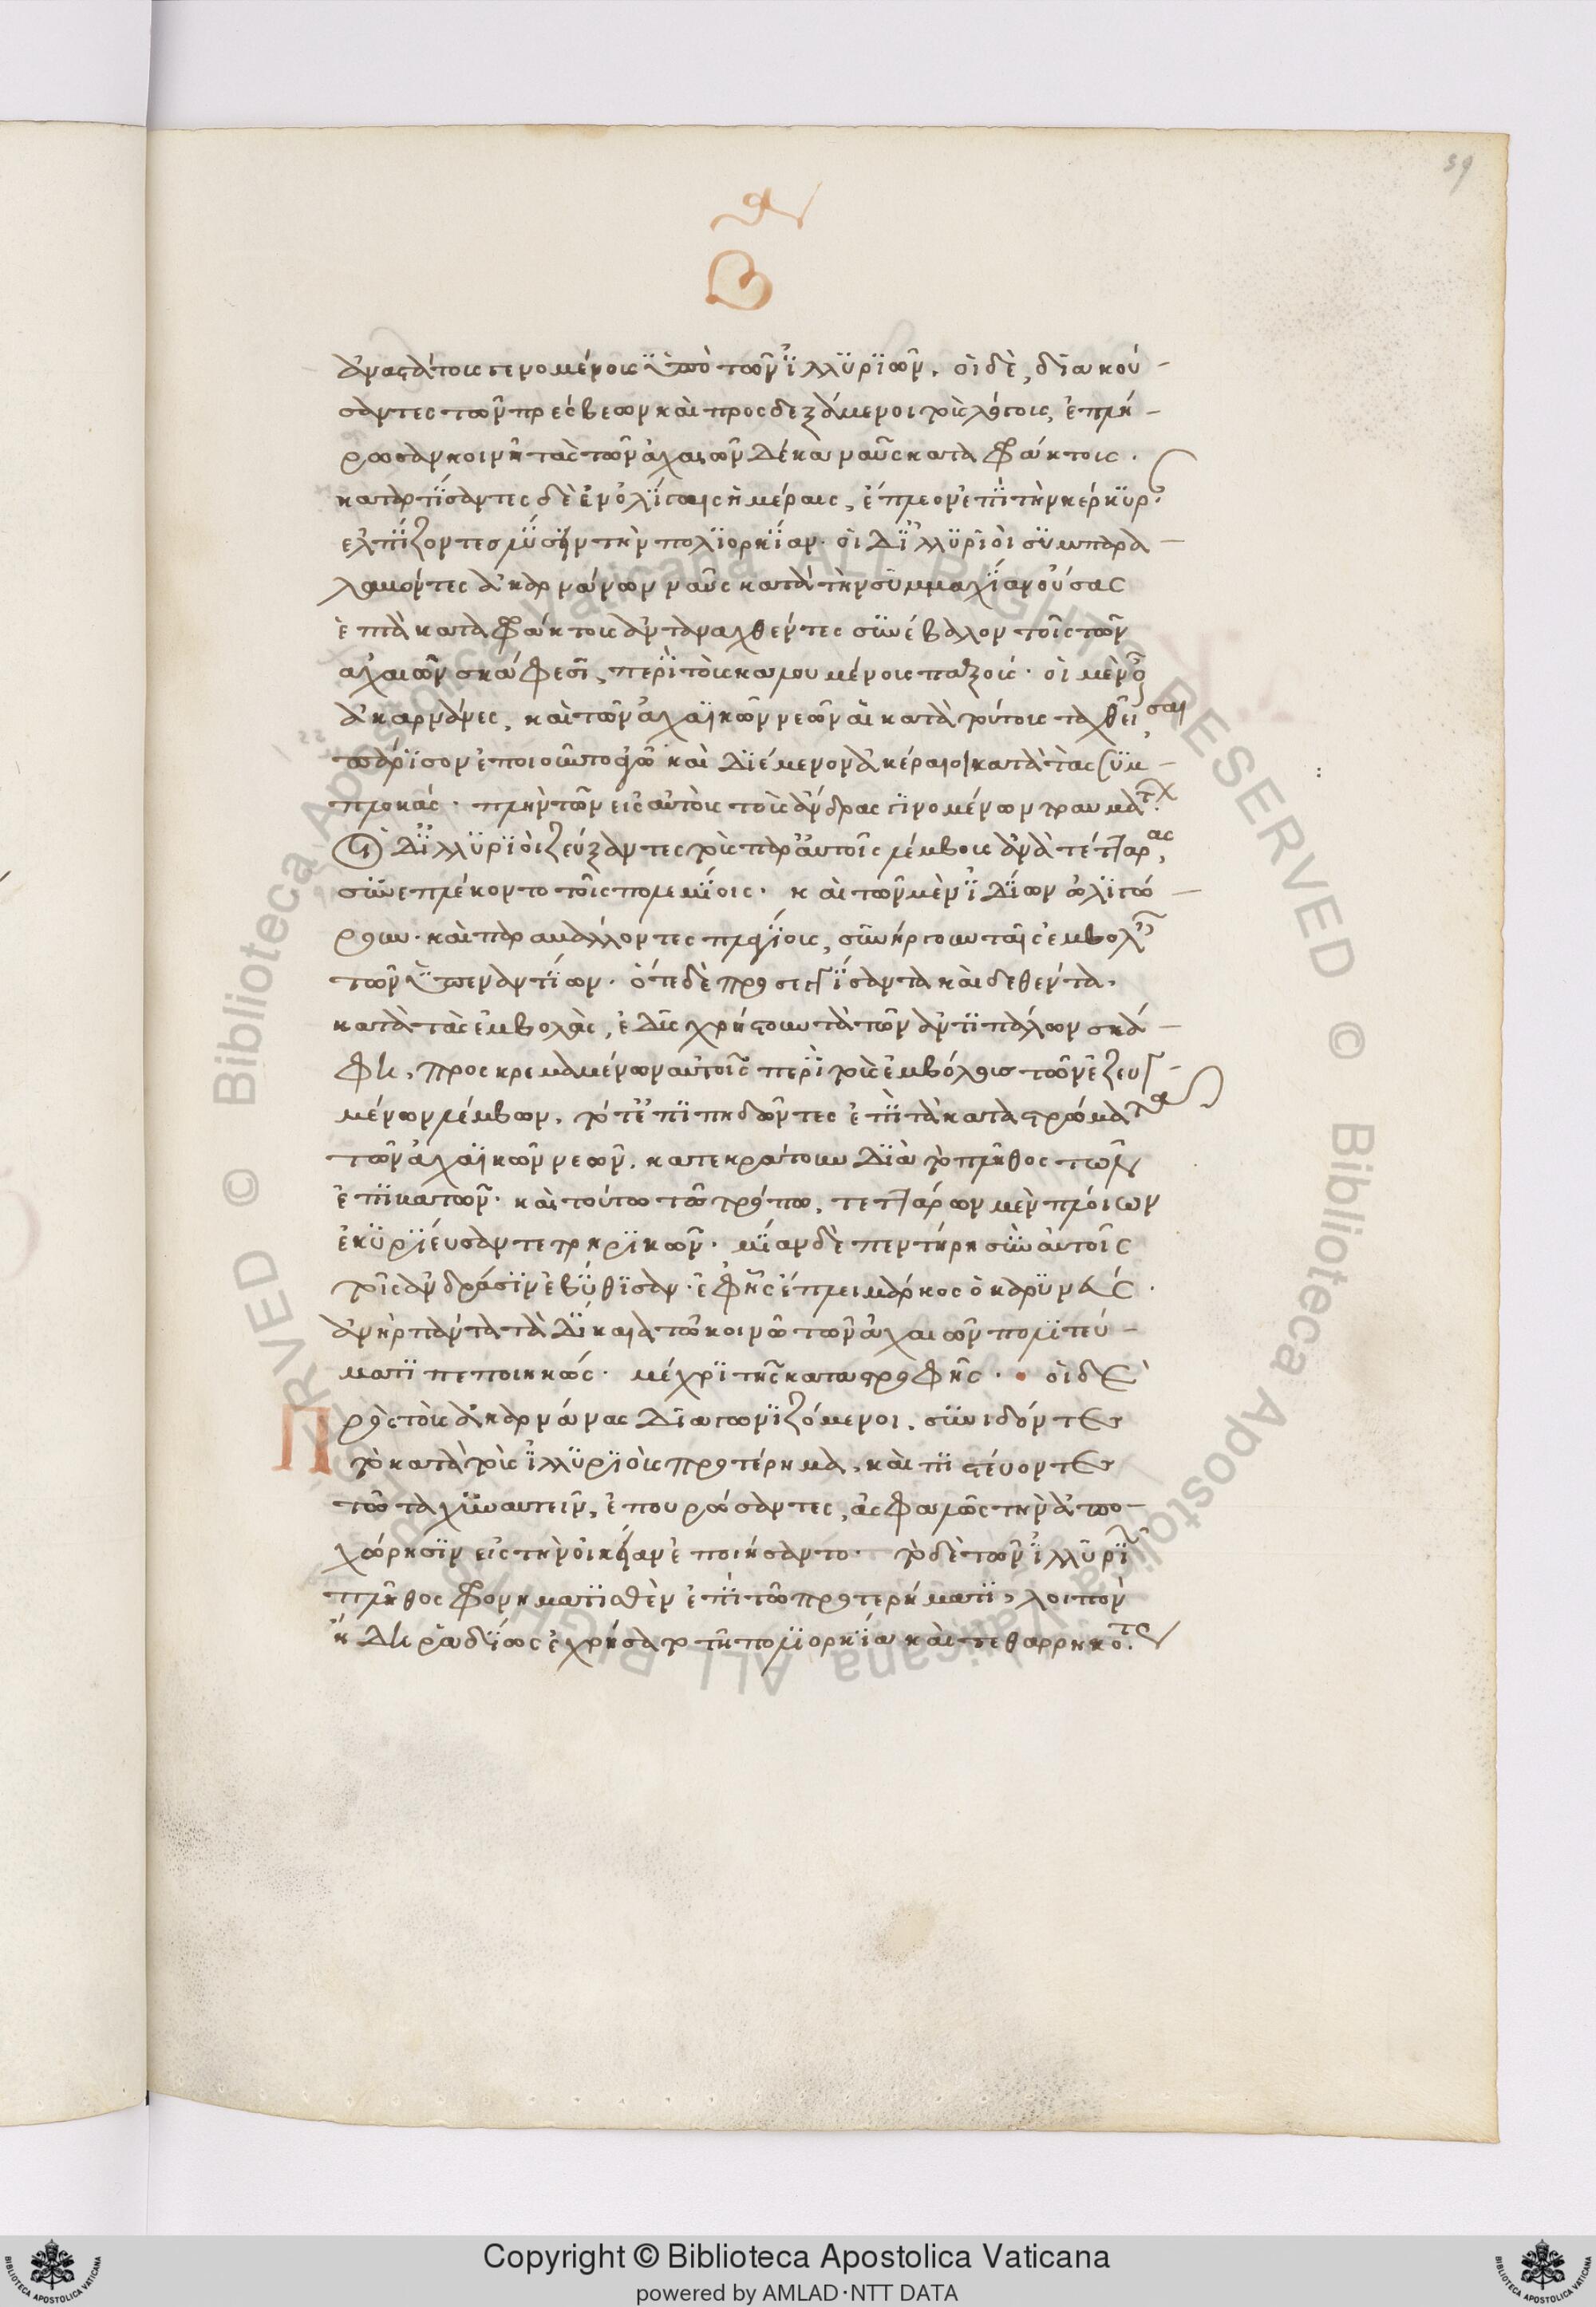 59
Β
ἀναστάτους γενομένους ὑπὸ τῶν ἰλλυριῶν. οἱ δὲ, διακού-
σαντες τῶν πρέσβεων καὶ προσδεξάμενοι τοὺς λόγους, ἐπλή-
ρωσαν κοινῇ τὰς τῶν ἀχαιῶν δέκα ναῦς καταφράκτους.
καταρτίσαντες δὲ ἐν ὀλίγαις ἡμέραις, ἔπλεον ἐπὶ τὴν κέρκυρ.
ἐλπίζοντες λύσειν τὴν πολιορκίαν. οἱ δ' ἰλλυριοὶ συμπαρα-
λαβόντες ἀκαρνάνων ναῦς κατὰ τὴν συμμαχίαν οὔσας
ἑπτὰ καταφράκτους ἀνταναχθέντες συνέβαλον τοῖς τῶν
ἀχαιῶν σκάφεσι, περὶ τοὺς καλουμένους παξούς. οἱ μὲν οὖν
ἀκαρνᾶνες, καὶ τῶν ἀχαϊκῶν νεῶν αἱ κατὰ τούτους ταχθεῖσαι
πάρισον ἐποίουν τὸν ἀγῶνα καὶ διέμενον ἀκέραιοι κατὰ τὰς συμ-
πλοκὰς. πλὴν τῶν εἰς αὐτοὺς τοὺς ἄνδρας γινομένων τραυμάτ.
Οἱ δ' ἰλλυριοὶ ζεύξαντες τοὺς παρ' αὐτοῖς λέμβους ἀνὰ τέτταρας,
συνεπλέκοντο τοῖς πολεμίοις. καὶ τῶν μὲν ἰδίων ὠλιγώ-
ρουν. καὶ παραβάλλοντες πλαγίους, συνήργουν ταῖς ἐμβολαῖς
τῶν ὑπεναντίων. ὅτε δὲ τρώσαντα καὶ δεθέντα.
κατὰ τὰς ἐμβολὰς, ἐδυσχρήστουν τὰ τῶν ἀντιπάλων σκά-
φη, προσκρεμαμένων αὐτοῖς περὶ τοὺς ἐμβόλους τῶν ἐζευγ-
μένων λέμβων. τότ' ἐπιπηδῶντες ἐπὶ τὰ καταστρώματα
τῶν ἀχαϊκῶν νεῶν. κατεκράτουν διὰ τὸ πλῆθος τῶν
ἐπιβατῶν. καὶ τούτῳ τῷ τρόπῳ, τεττάρων μὲν πλοίων
ἐκυρίευσαν τετρηρικῶν. μίαν δὲ πεντήρη σὺν αὐτοῖς
τοῖς ἀνδράσιν ἐβύθισαν. ἐφ' ἧς ἔπλει μάρκος ὁ καρυνεύς.
ἀνὴρ πάντα τὰ δίκαια τῷ κοινῷ τῶν ἀχαιῶν πολιτεύ-
ματι πεποιηκώς. μέχρι τῆς καταστροφῆς. οἱ δὲ
Πρὸς τοὺς ἀκαρνάνας διαγωνιζόμενοι, συνιδόντες
τὸ κατὰ τοὺς ἰλλυριοὺς προτέρημα, καὶ πιστεύοντες
τῷ ταχυναυτεῖν, ἐπουρώσαντες, ἀσφαλῶς τὴν ἀπο-
χώρησιν εἰς τὴν οἰκείαν ἐποιήσαντο. τὸ δὲ τῶν ἰλλυριῶν
πλῆθος φρονηματισθὲν ἐπὶ τῷ προτερήματι, λοιπὸν
ἤδη ῥᾳδίως ἐχρήσατο τῇ πολιορκίᾳ καὶ τεθαρρηκότως
Copyright © Biblioteca Apostolica Vaticana
powered by AMLAD·NTT DATA